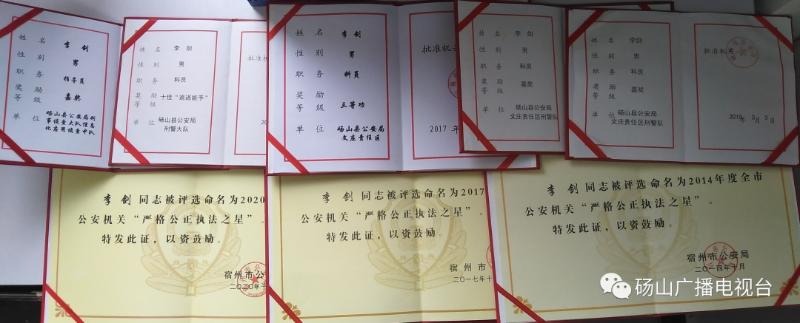 姓名 李剑
性别 男
职务 指导员
奖励等级 嘉奖
单位 砀山县公安局刑
事侦查大队信息
化应用侦查中队
姓名 李剑
性别 男
职务 科员
奖励等级 十佳“追逃能手”
单位 砀山县公安局
刑警大队
姓名 李剑
性别 男
职务 科员
奖励等级 三等功
单位 砀山县公安局
文庄责任区
批准机
2017 年
姓名 李剑
性别 男
职务 科员
奖励等级 嘉奖
单位 砀山县公安局
文庄责任区刑警队
姓名 李剑
性别 男
职务 科员
奖励等级 嘉奖
单位 砀山县公安局
文庄责任区刑警队
批准机关
李剑同志被评选命名为2020
公安机关“严格公正执法之星”。
特发此证,以资鼓励。
宿州市公安
二〇二〇年
李剑同志被评选命名为2017
公安机关“严格公正执法之星”。
特发此证,以资鼓励。
宿州市
二〇一七年十
李剑同志被评选命名为2014年度全市
公安机关“严格公正执法之星”。
特发此证,以资鼓励。
宿州市公安局
二〇一四年十月
砀山广播电视台